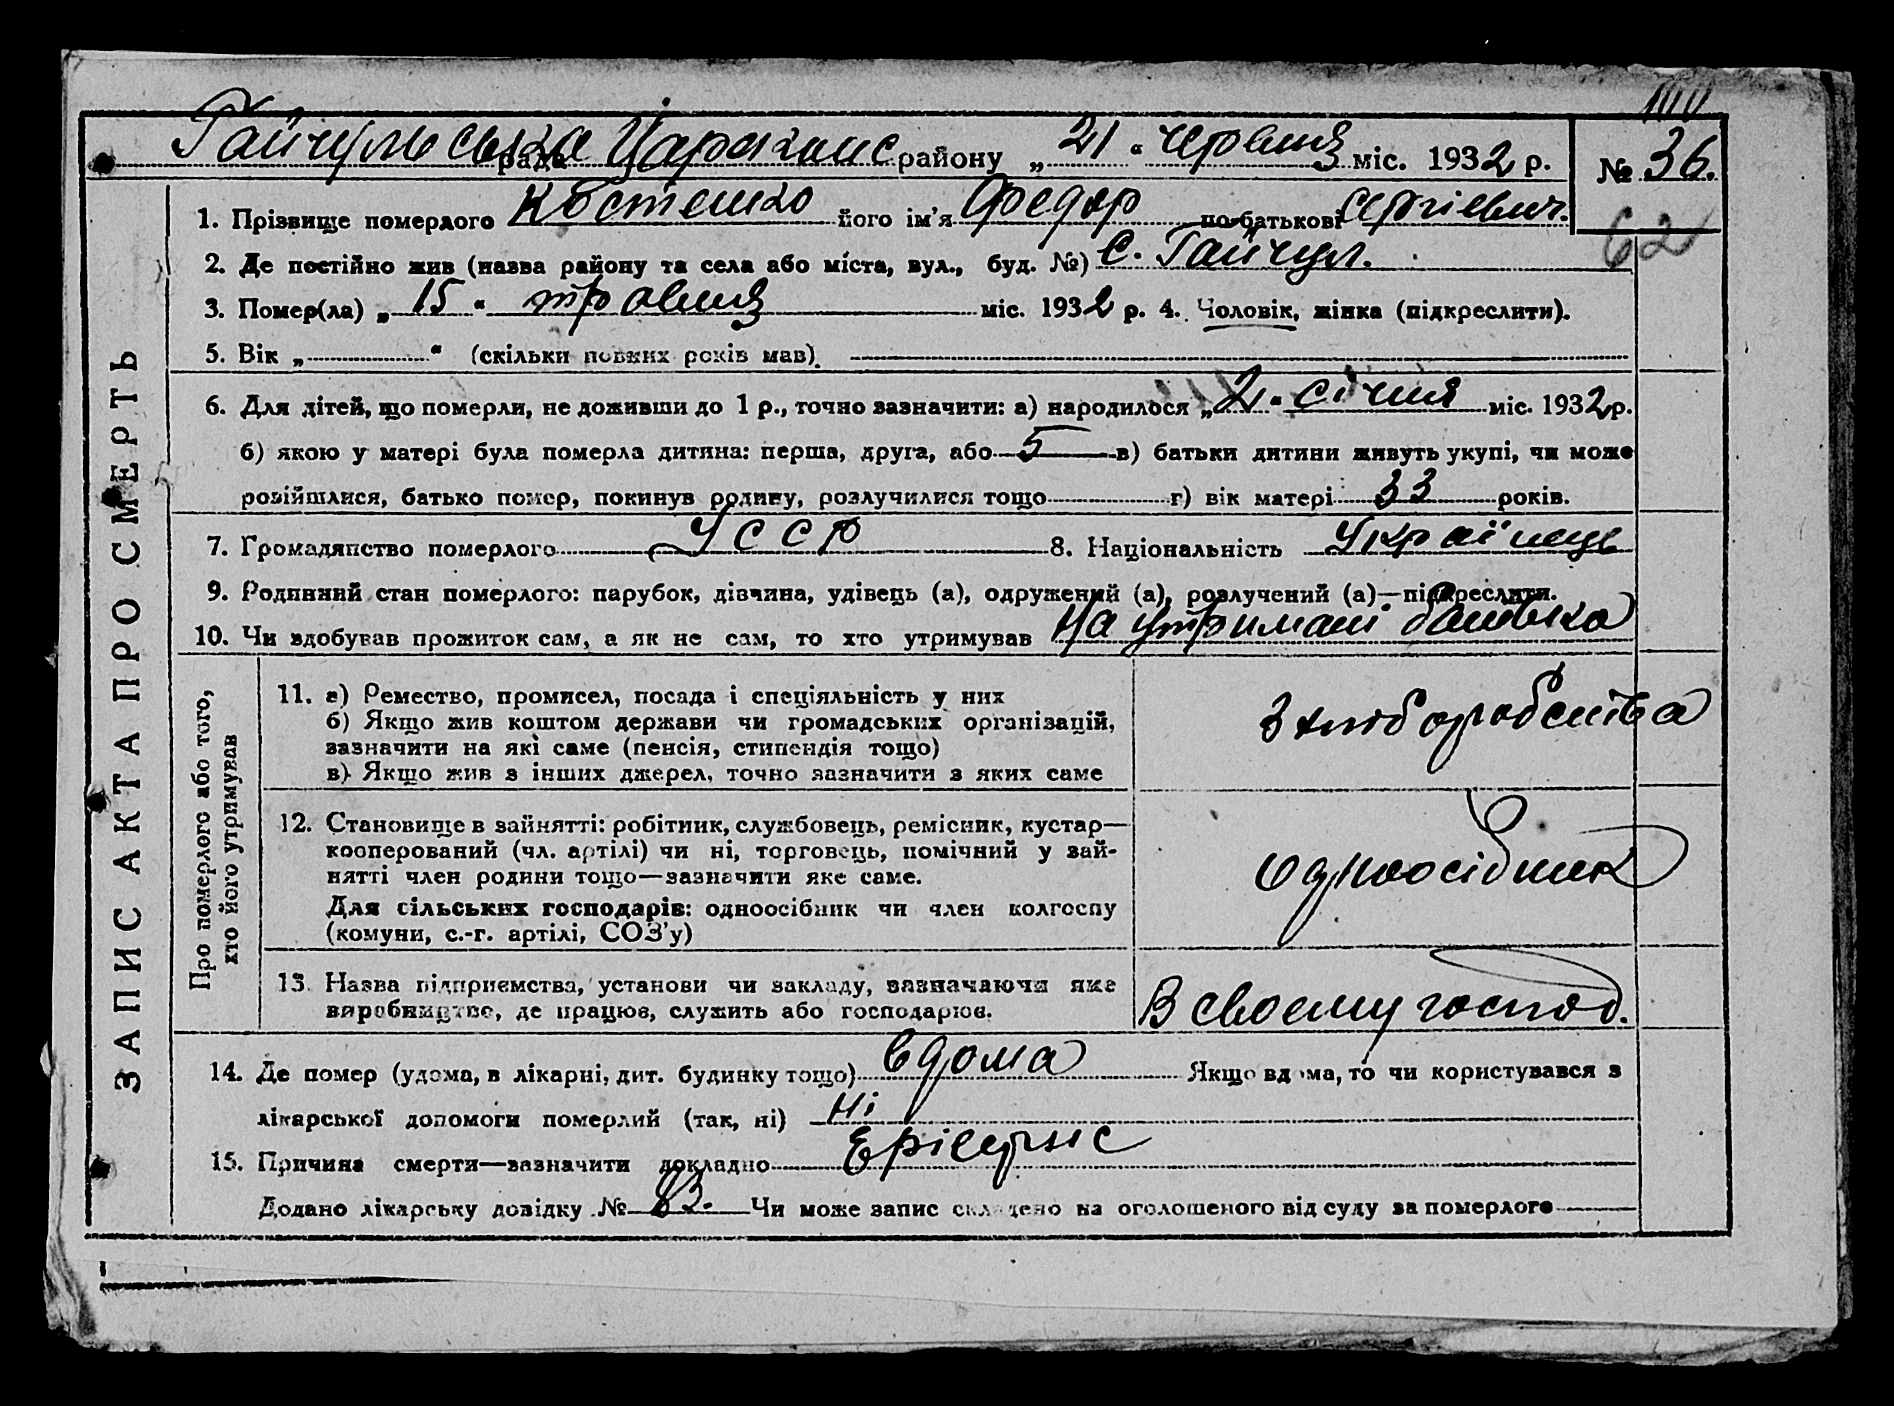 Гайчульська рада Царекон с району „ 21 “ червня міс. 1932 р. № 36.
62
1. Прізвище померлого Костенко його ім'я Федор по-батькові Сергіевич.
2. Де постійно жив (назва району та села або міста, вул., буд. №) С. Гайчул.
3. Помер(ла) „ 15 “ травня міс. 1932 р. 4. Чоловік, жінка (підкреслити).
5. Вік „ “ (скільки повних років мав)
6. Для дітей, що померли, не доживши до 1 р., точно зазначити: а) народилося „ 2 “ січня міс. 1932 р.
б) якою у матері була померла дитина: перша, друга, або 5 в) батьки дитини живуть укупі, чи може
розійшлися, батько помер, покинув родину, розлучилися тощо г) вік матері 33 років.
7. Громадянство померлого УССР 8. Національність Українець
9. Родинний стан померлого: парубок, дівчина, удівець (а), одружений (а), розлучений (а)—підкреслити.
10. Чи здобував прожиток сам, а як не сам, то хто утримував На утримані батька
11. а) Ремество, промисел, посада і спеціяльність у них
б) Якщо жив коштом держави чи громадських організацій,
зазначити на які саме (пенсія, стипендія тощо)
в) Якщо жив з інших джерел, точно зазначити з яких саме
З хліборобства
12. Становище в зайнятті: робітник, службовець, ремісник, кустар—
кооперований (чл. артілі) чи ні, торговець, помічний у зай-
нятті член родини тощо—зазначити яке саме.
Для сільських господарів: одноосібник чи член колгоспу
(комуни, с.-г. артілі, СОЗ'у)
одноосібник
13. Назва підприємства, установи чи закладу, зазначаючи яке
виробництво, де працює, служить або господарює.
В своему господ.
14. Де помер (удома, в лікарні, дит. будинку тощо) вдома Якщо вдома, то чи користувався з
лікарської допомоги померлий (так, ні) Ні
15. Причина смерти—зазначити докладно
Додано лікарську довідку № 83. Чи може запис складено на оголошеного від суду за померлого
ЗАПИС АКТА ПРО СМЕРТЬ
Про померлого або того,
хто його утримував